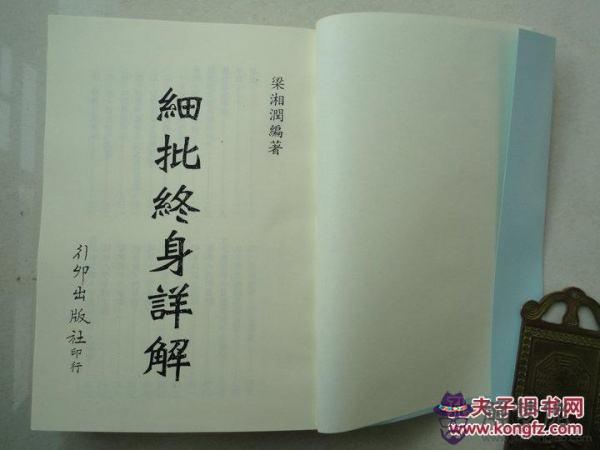 梁湘潤編著
細批終身詳解
行卯出版社印行
夫子旧书网
www.kongfz.com